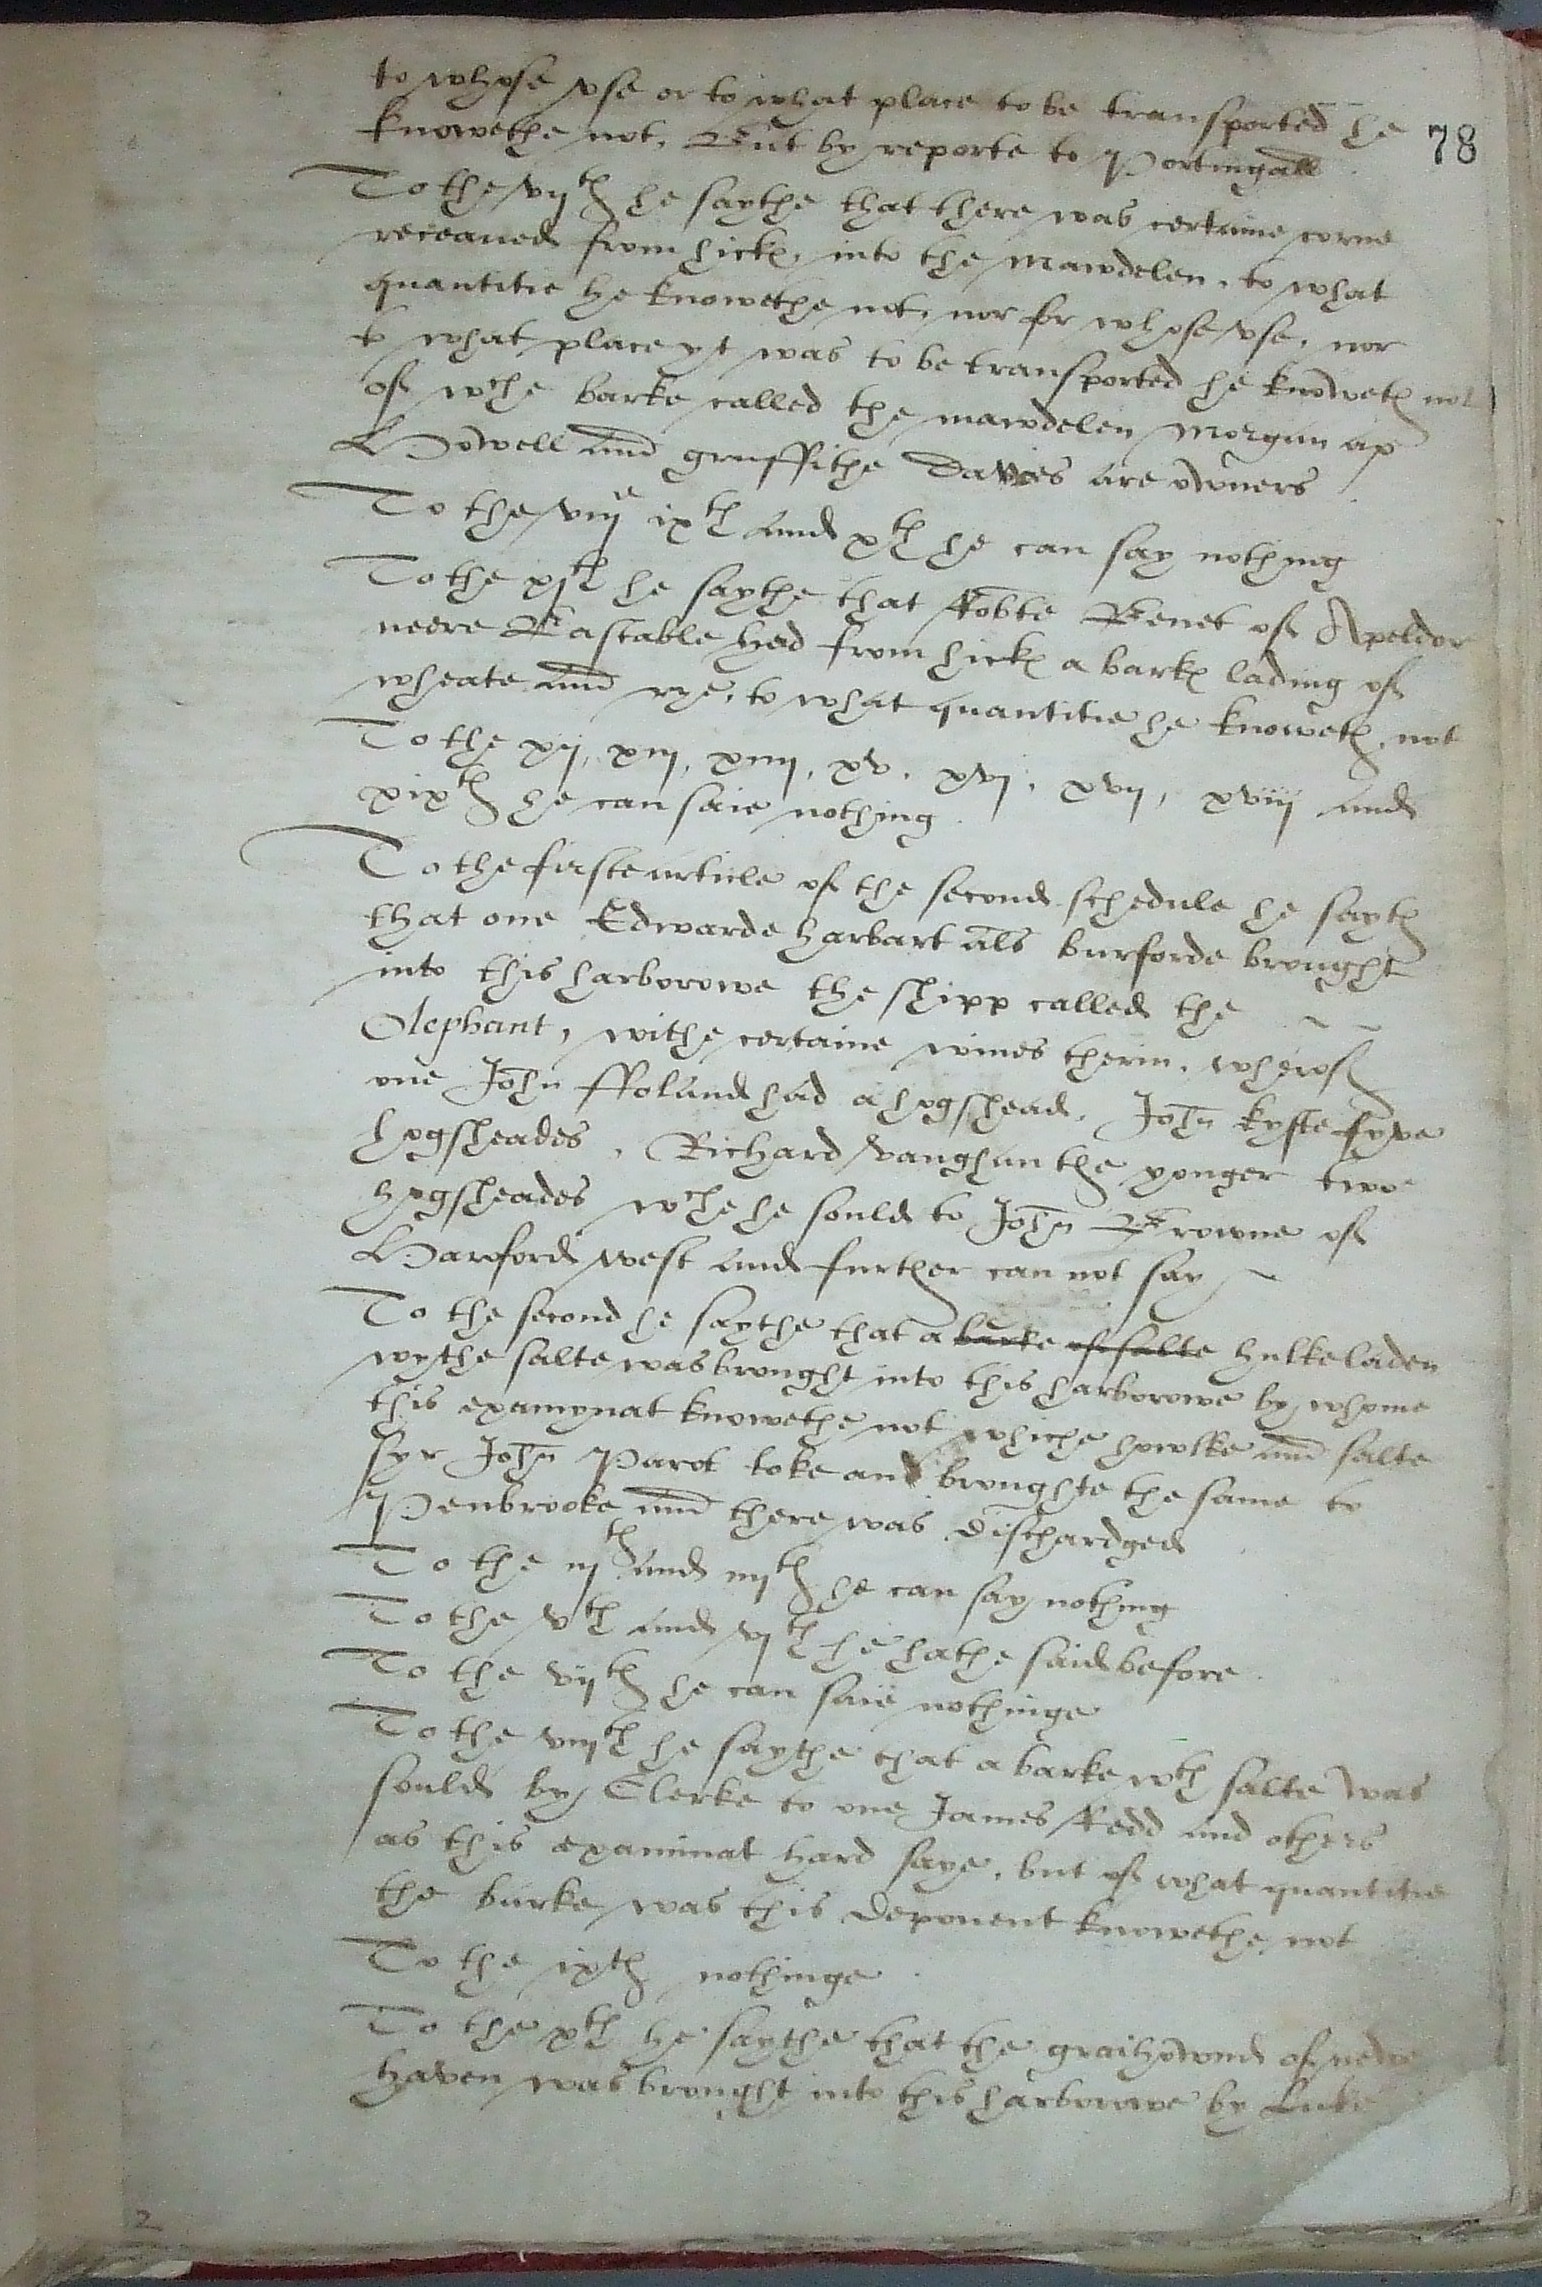 to whose vse or to what place to be transported he
knowethe not. But by reporte to Portingall
78
To the vijth he saythe that there was certaine corne
receaued from hick, into the Mawdelen, to what
quantitie he knowethe not, nor for whose vse, nor
to what place yt was to be transported he knoweth not
of wche barke called the mawdelen Morgan ap
Howell and gruffithe Davies are owners
To the viije ixth and xth he can say nothing
To the xjth he saythe that Robte Benet of Apeldor
neere Bastable had from hick a bark lading of
wheate and rye, to what quantitie he knoweth not
To the xij, xiij, xiiij, xv, xvj, xvij, xviij and
xixth he can saie nothing
To the firste article of the second schedule he sayth
that one Edwarde harbart als burforde brought
into this harborowe the shipp called the
Olephant, withe certaine wines therin, wherof
one John ffoland had a hogshead, John kyfte fyve
hogsheades, Richard vaughan the yonger two
hogsheades wche he sould to John Browne of
Harford west and further can not say
To the second he saythe that a barke of salte hulke laden
wythe salte was brought into this harborowe by whome
this examynat knowethe not whiche howlke and salte
syr John Parot toke and broughte the same to
Penbrooke and there was dischardged
To the iijth and iiijth he can say nothing
To the vth and vjth he hathe said before
To the vijth he can saie nothinge
To the viijth he saythe that a barke wth salte was
sould by Clerke to one James Redd and others
as this examinat hard saye, but of what quantitie
the barke was this deponent knowethe not
To the ixth nothinge
To the xth he saythe that the graihownd of newe
haven was brought into this harborowe by Luke
2